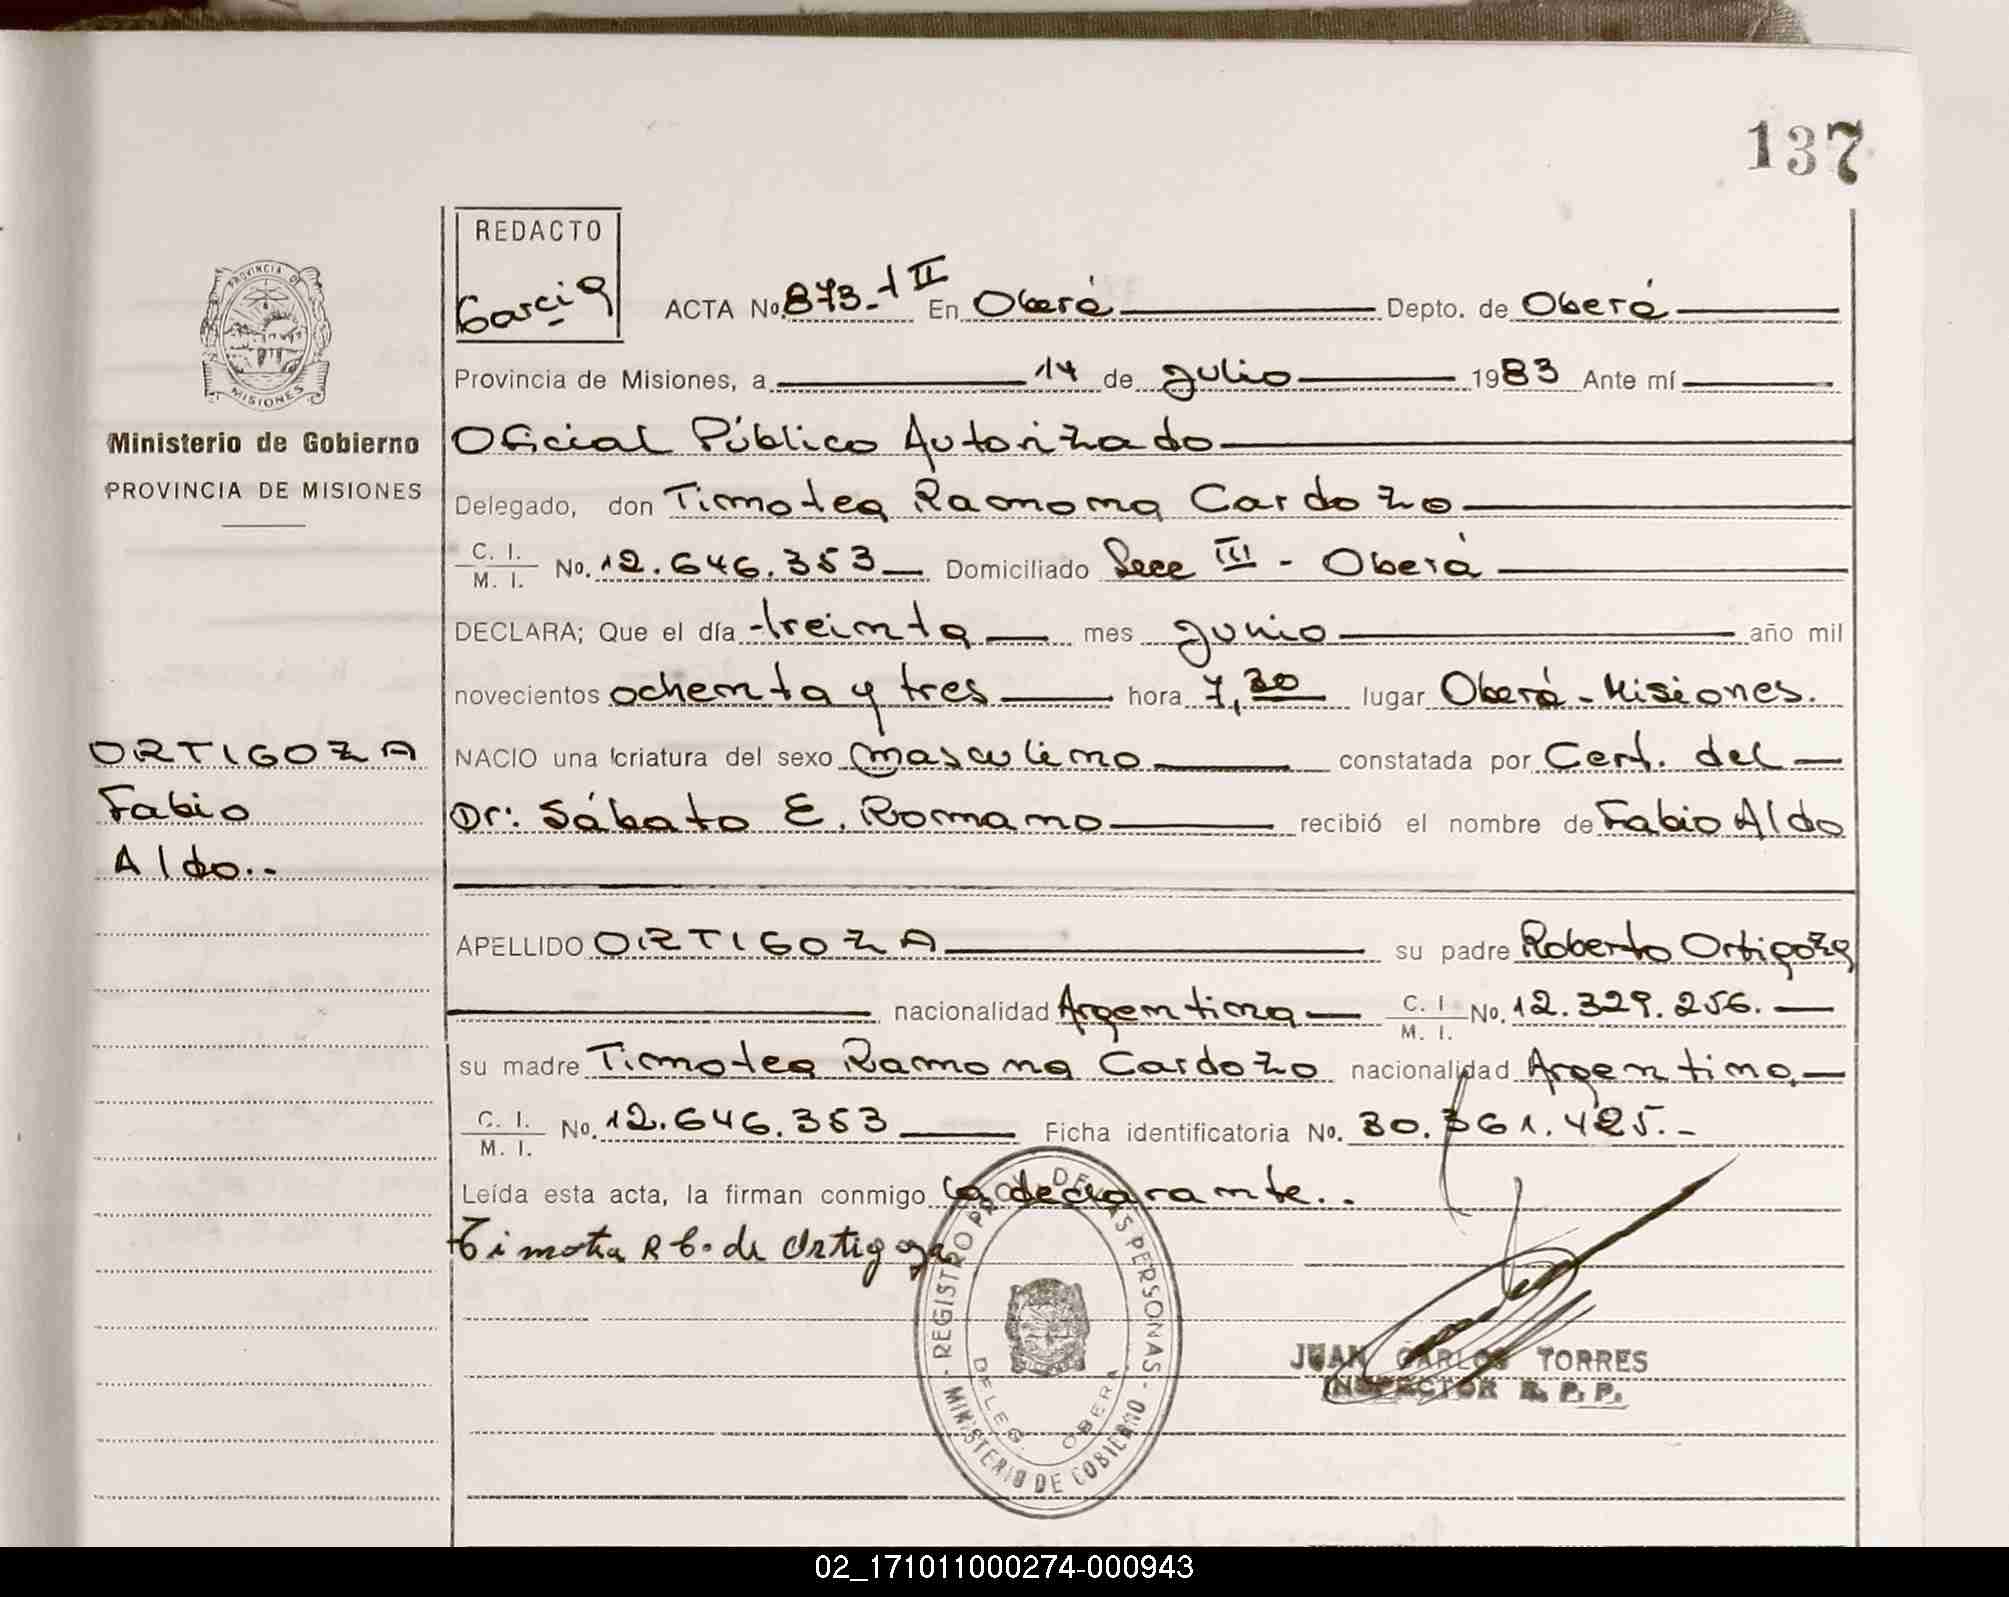 137
REDACTO
Garcia
ACTA No. 873-1 II En Oberá Depto. de Oberá
PROVINCIA DE
MISIONES
Provincia de Misiones, a 14 de Julio 1983 Ante mí
Ministerio de Gobierno
Oficial Público Autorizado
PROVINCIA DE MISIONES
Delegado, don Timotea Ramona Cardozo
C. I.
M. I. No. 12.646.353 Domiciliado Secc III - Oberá
DECLARA; Que el día treinta mes Junio año mil
novecientos ochenta y tres hora 7,30 lugar Oberá - Misiones.
ORTIGOZA
NACIO una criatura del sexo masculino constatada por Cert. del
Fabio
Dr: Sábato E. Romano recibió el nombre de Fabio Aldo
Aldo..
APELLIDO ORTIGOZA su padre Roberto Ortigoza
nacionalidad Argentina C. I. M. I. No. 12.329.256.
su madre Timotea Ramona Cardozo nacionalidad Argentina
C. I.
M. I. No. 12.646.353 Ficha identificatoria No. 30.361.425.-
Leída esta acta, la firman conmigo la declarante..
Timotea R C. de Ortigoza
REGISTRO PROV. DE LAS PERSONAS - MINISTERIO DE GOBIERNO -
DELEG. OBERA
JUAN CARLOS TORRES
INSPECTOR R. P. P.
02_171011000274-000943